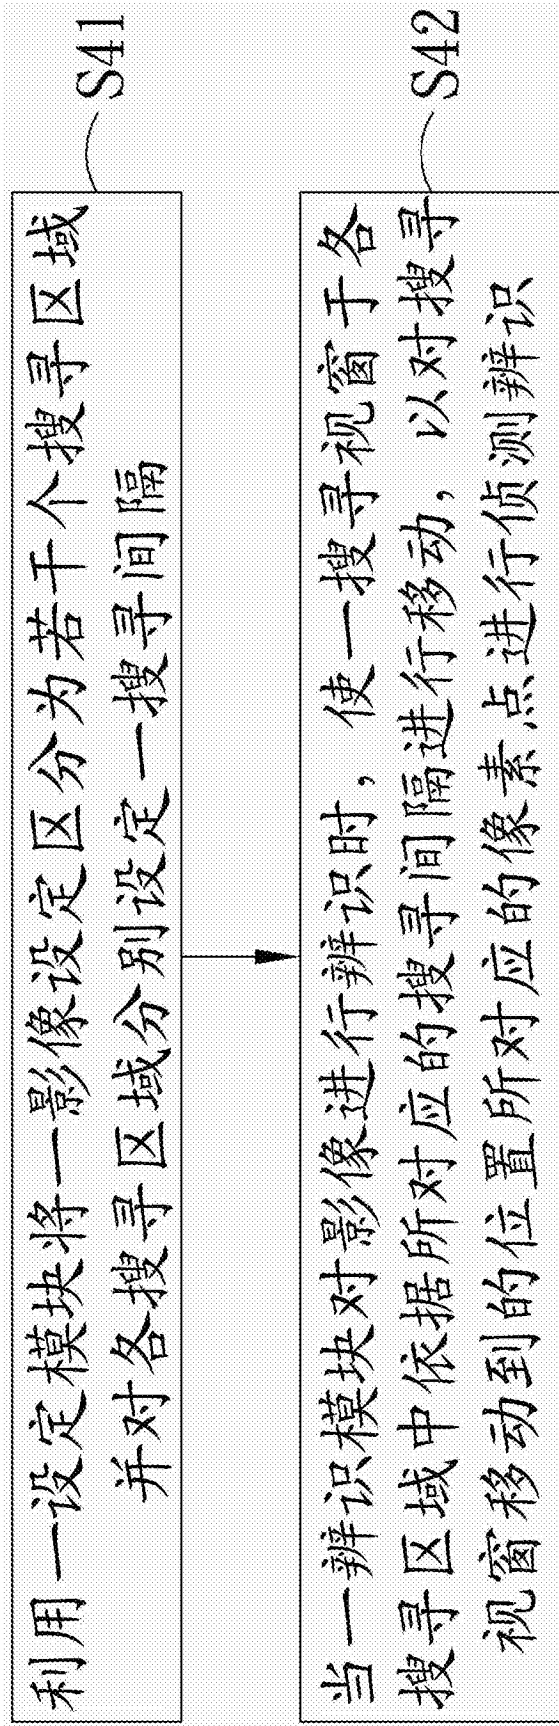 利用一设定模块将一影像设定区分为若干个搜寻区域
并对各搜寻区域分别设定一搜寻间隔
S41
当一辨识模块对影像进行辨识时，使一搜寻视窗于各
搜寻区域中依据所对应的搜寻间隔进行移动，以对搜寻
视窗移动到的位置所对应的像素点进行侦测辨识
S42